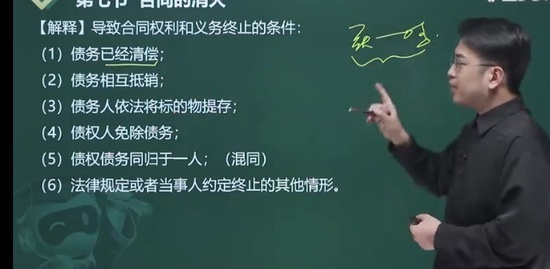 第七节 合同的消灭
【解释】导致合同权利和义务终止的条件：
（1）债务已经清偿；
（2）债务相互抵销；
（3）债务人依法将标的物提存；
（4）债权人免除债务；
（5）债权债务同归于一人；（混同）
（6）法律规定或者当事人约定终止的其他情形。